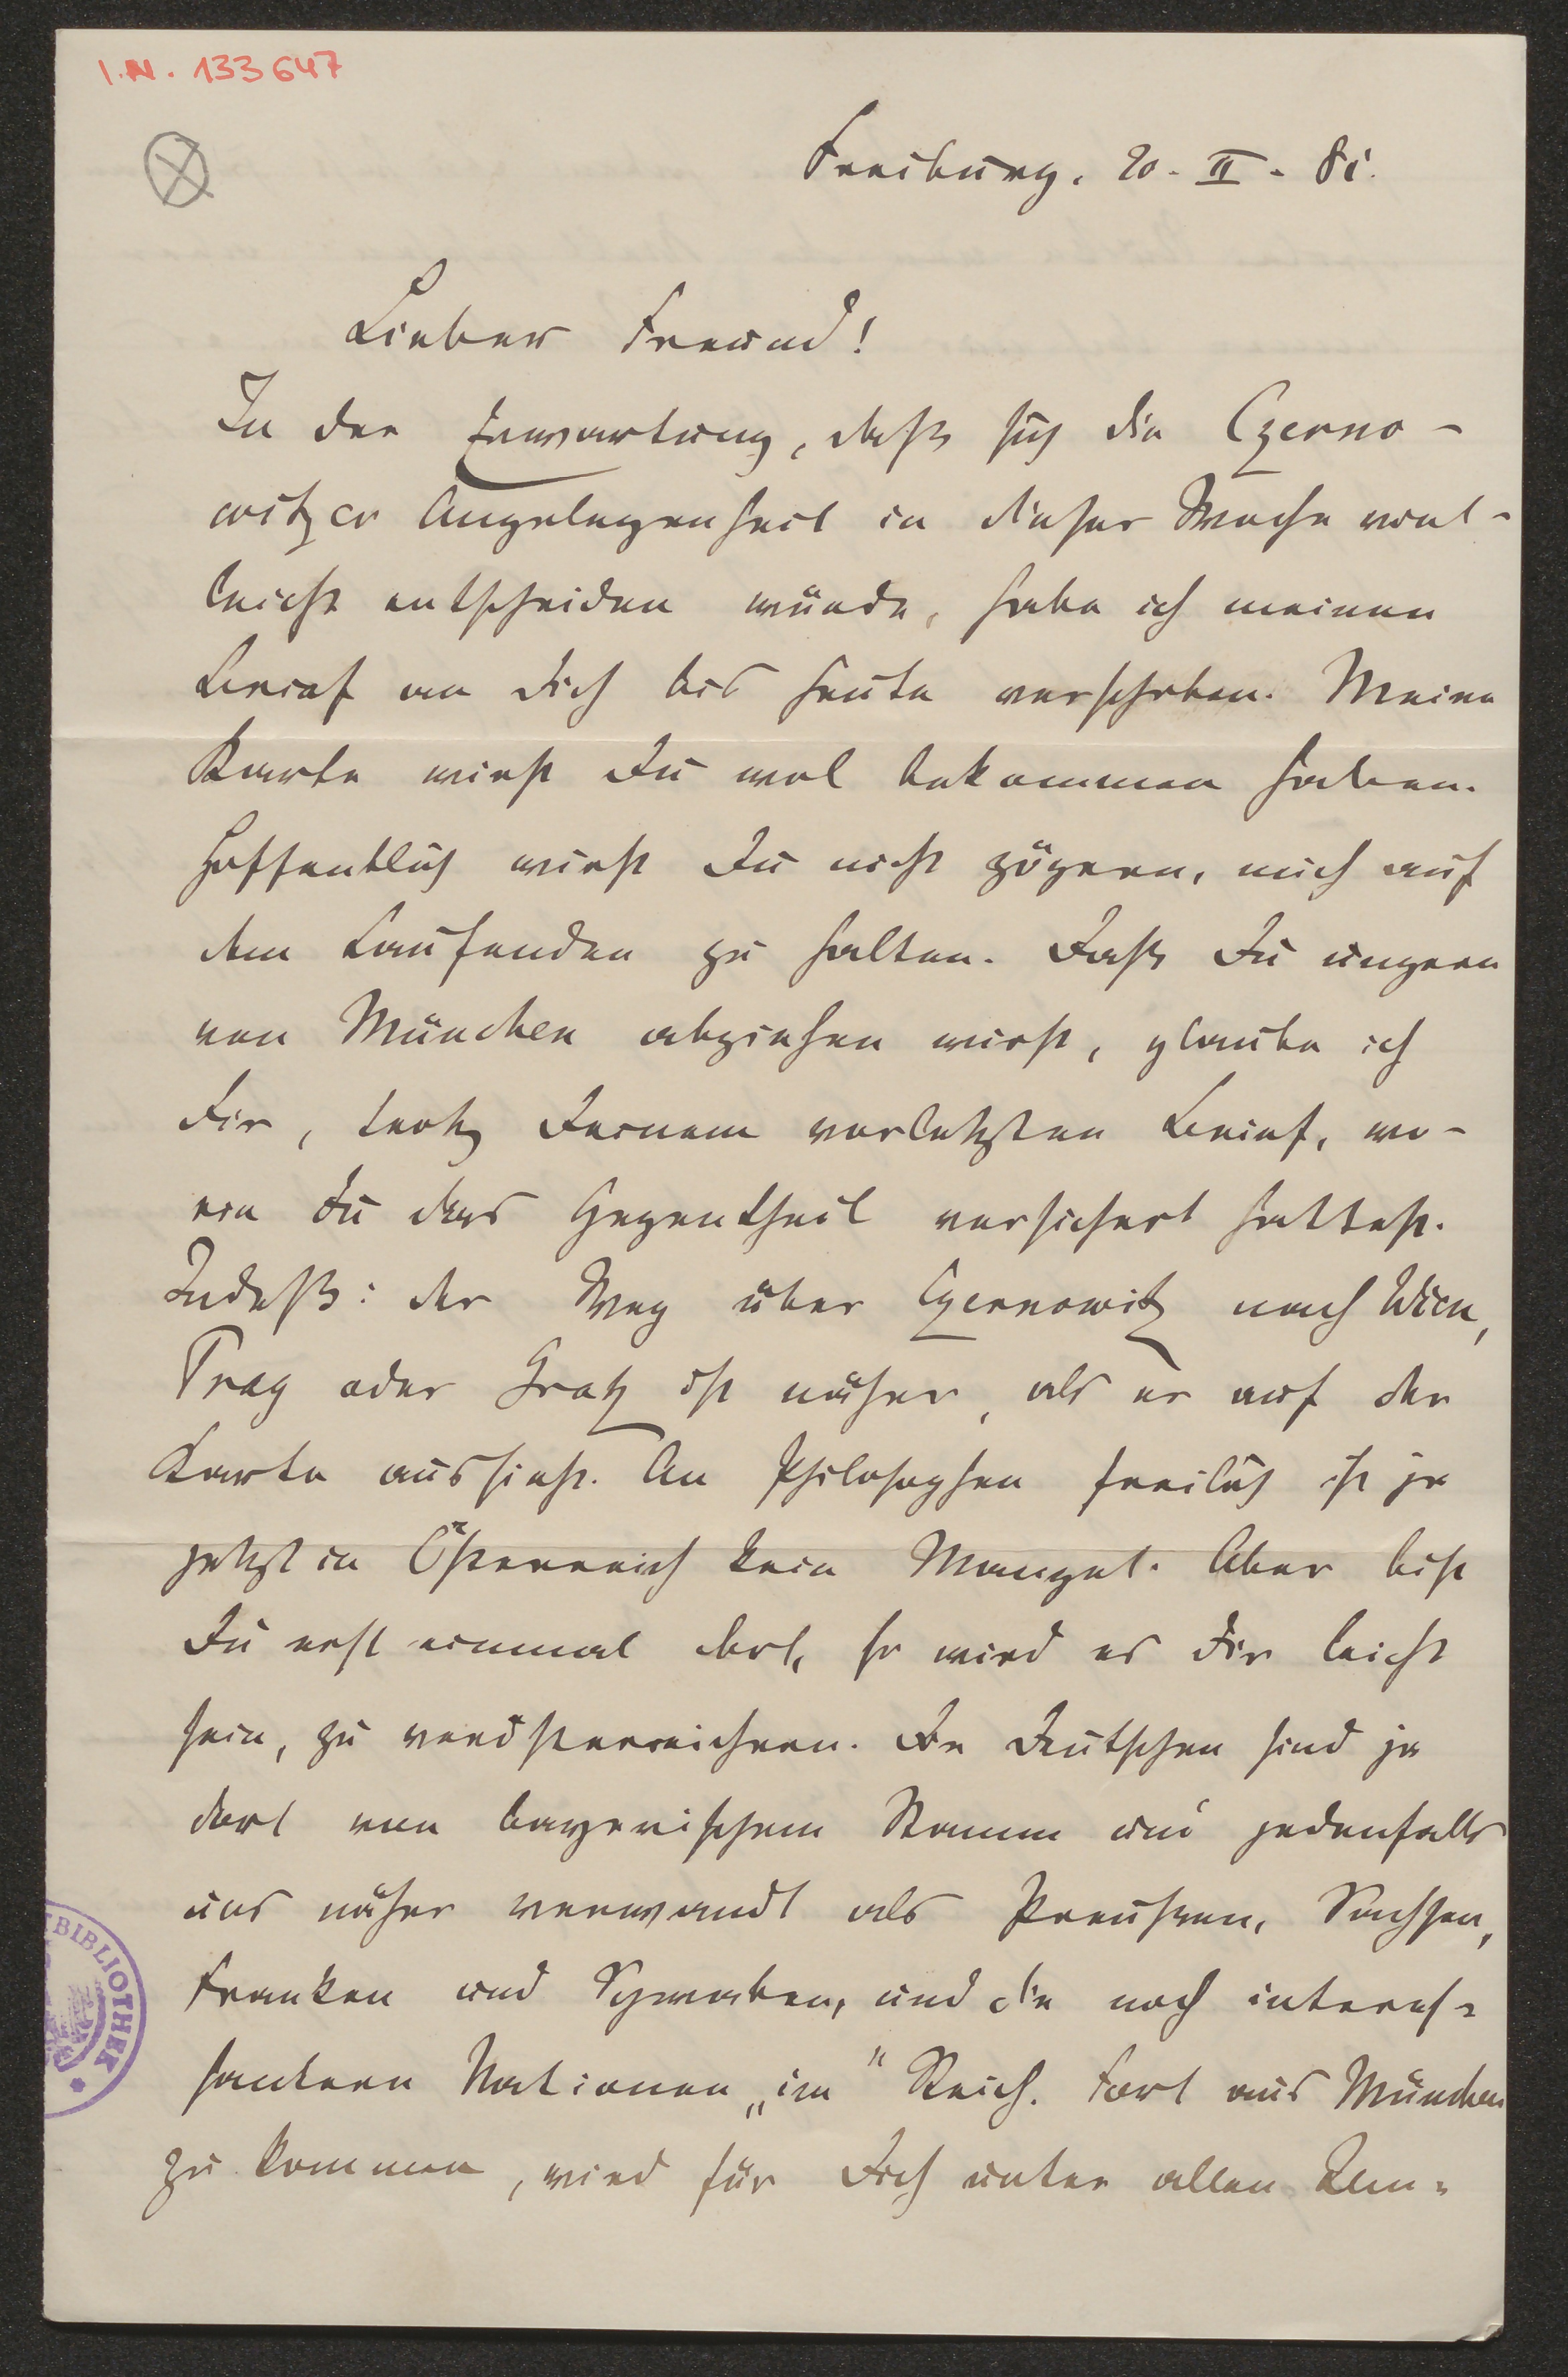 I.N. 133647
Freiburg, 20. II. 81.
Lieber Freund!
In der Erwartung, daß sich die Czerno-
witzer Angelegenheit in dieser Woche viel-
leicht entscheiden würde, habe ich meinen
Brief an Dich bis heute verschoben. Meine
Karte wirst Du wol bekommen haben.
Hoffentlich wirst Du nicht zögern, mich auf
dem Laufenden zu halten. Daß Du ungern
von München abziehen wirst, glaube ich
Dir, trotz Deinem vorletzten Brief, wo-
rin Du das Gegentheil versichert hattest.
Indeß: der Weg über Czernowitz nach Wien,
Prag oder Gratz ist näher, als er auf der
Karte aussieht. An Philosophen freilich ist ja
jetzt in Österreich kein Mangel. Aber bist
Du erst einmal dort, so wird es Dir leicht
sein, zu verösterreichern. Die Deutschen sind ja
dort von bayerischem Stamm und jedenfalls
uns näher verwandt als Preußen, Sachsen,
Franken und Schwaben, und die noch interes-
santern Nationen „im“ Reich. Fort aus München
zu kommen, wird für Dich unter allen Um-
BIBLIOTHEK